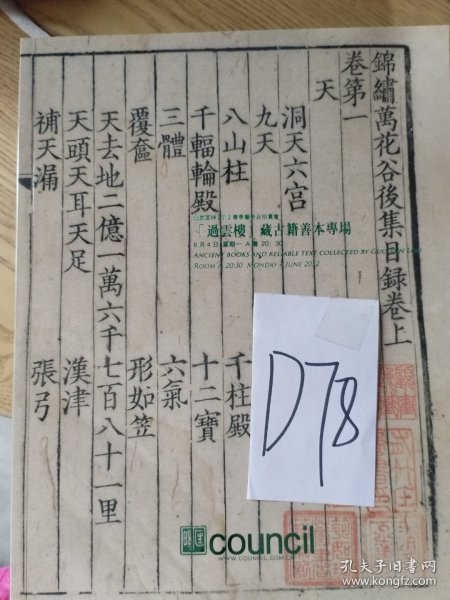 錦繡萬花谷後集目録卷上
卷第一
天
洞天六宫
九天
八山柱
千柱殿
千輻輪殿
十二寶
三體
六氣
覆奩
形如笠
天去地二億一萬六千七百八十一里
天頭天耳天足
漢津
補天漏
張弓
北京匡時2012春季藝術品拍賣會
「過雲樓」藏古籍善本專場
6月4日 星期一 A廳 20:30
ANCIENT BOOKS AND RELIABLE TEXT COLLECTED BY GUOYUN LOU
ROOM A 20:30 MONDAY 4 JUNE 2012
D78
匡時 council
WWW.COUNCIL.COM.CN
孔夫子旧书网
www.kongfz.com